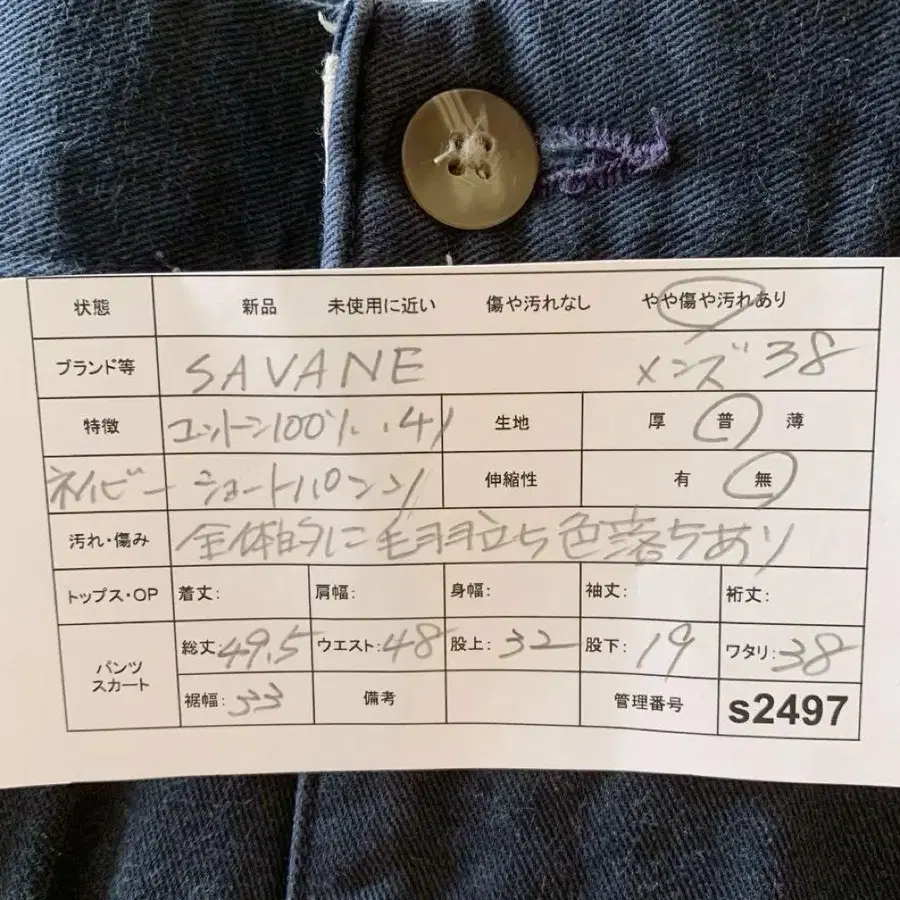 状態 新品 未使用に近い 傷や汚れなし やや傷や汚れあり
ブランド等 SAVANE メンズ 38
特徴 コットン100% 生地 厚 普 薄
ネイビー ショートパンツ 伸縮性 有 無
汚れ・傷み 全体的に毛羽立ち色落ちあり
トップス・OP 着丈: 肩幅: 身幅: 袖丈: 裄丈:
パンツ スカート 総丈:49.5 ウエスト:48 股上:32 股下:19 ワタリ:38
裾幅:33 備考 管理番号 s2497